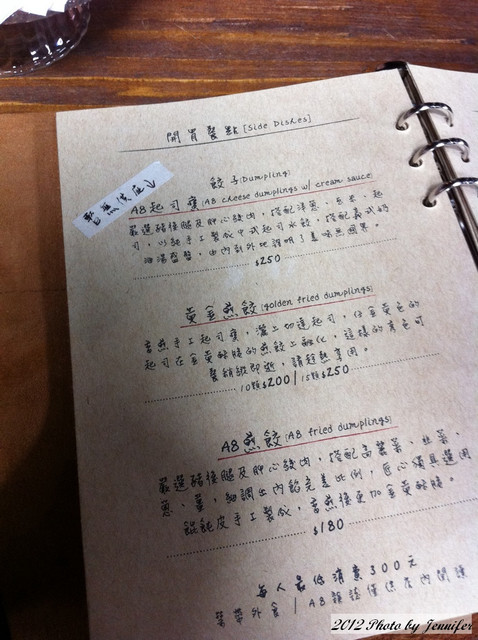 開胃餐點 [Side Dishes]
餃子(Dumpling)
暫無供應
A8起司寶(A8 cheese dumplings w/ cream sauce
嚴選豬後腿及胛心絞肉,搭配洋蔥、玉米、起
司,以純手工製成中式起司水餃,搭配義式奶
油濃醬醬,由內到外地說明了美味無國界。
$250
黃金煎餃(golden fried dumplings)
香煎手工起司寶,灑上切達起司,仔金黃色的
起司在金黃酥脆的煎餃上融化,這樣的黃色可
是稍縱即逝,請趁熱享用。
10顆$200/15顆$250
A8煎餃(A8 fried dumplings)
嚴選豬後腿及胛心絞肉,搭配高麗菜、韭菜、
蔥、薑,細調出內餡完美比例,包心
餛飩皮手工製成,香煎後更加金黃酥脆。
$180
每人最低消費300元
禁帶外食/A8
2012 Photo by Jennifer